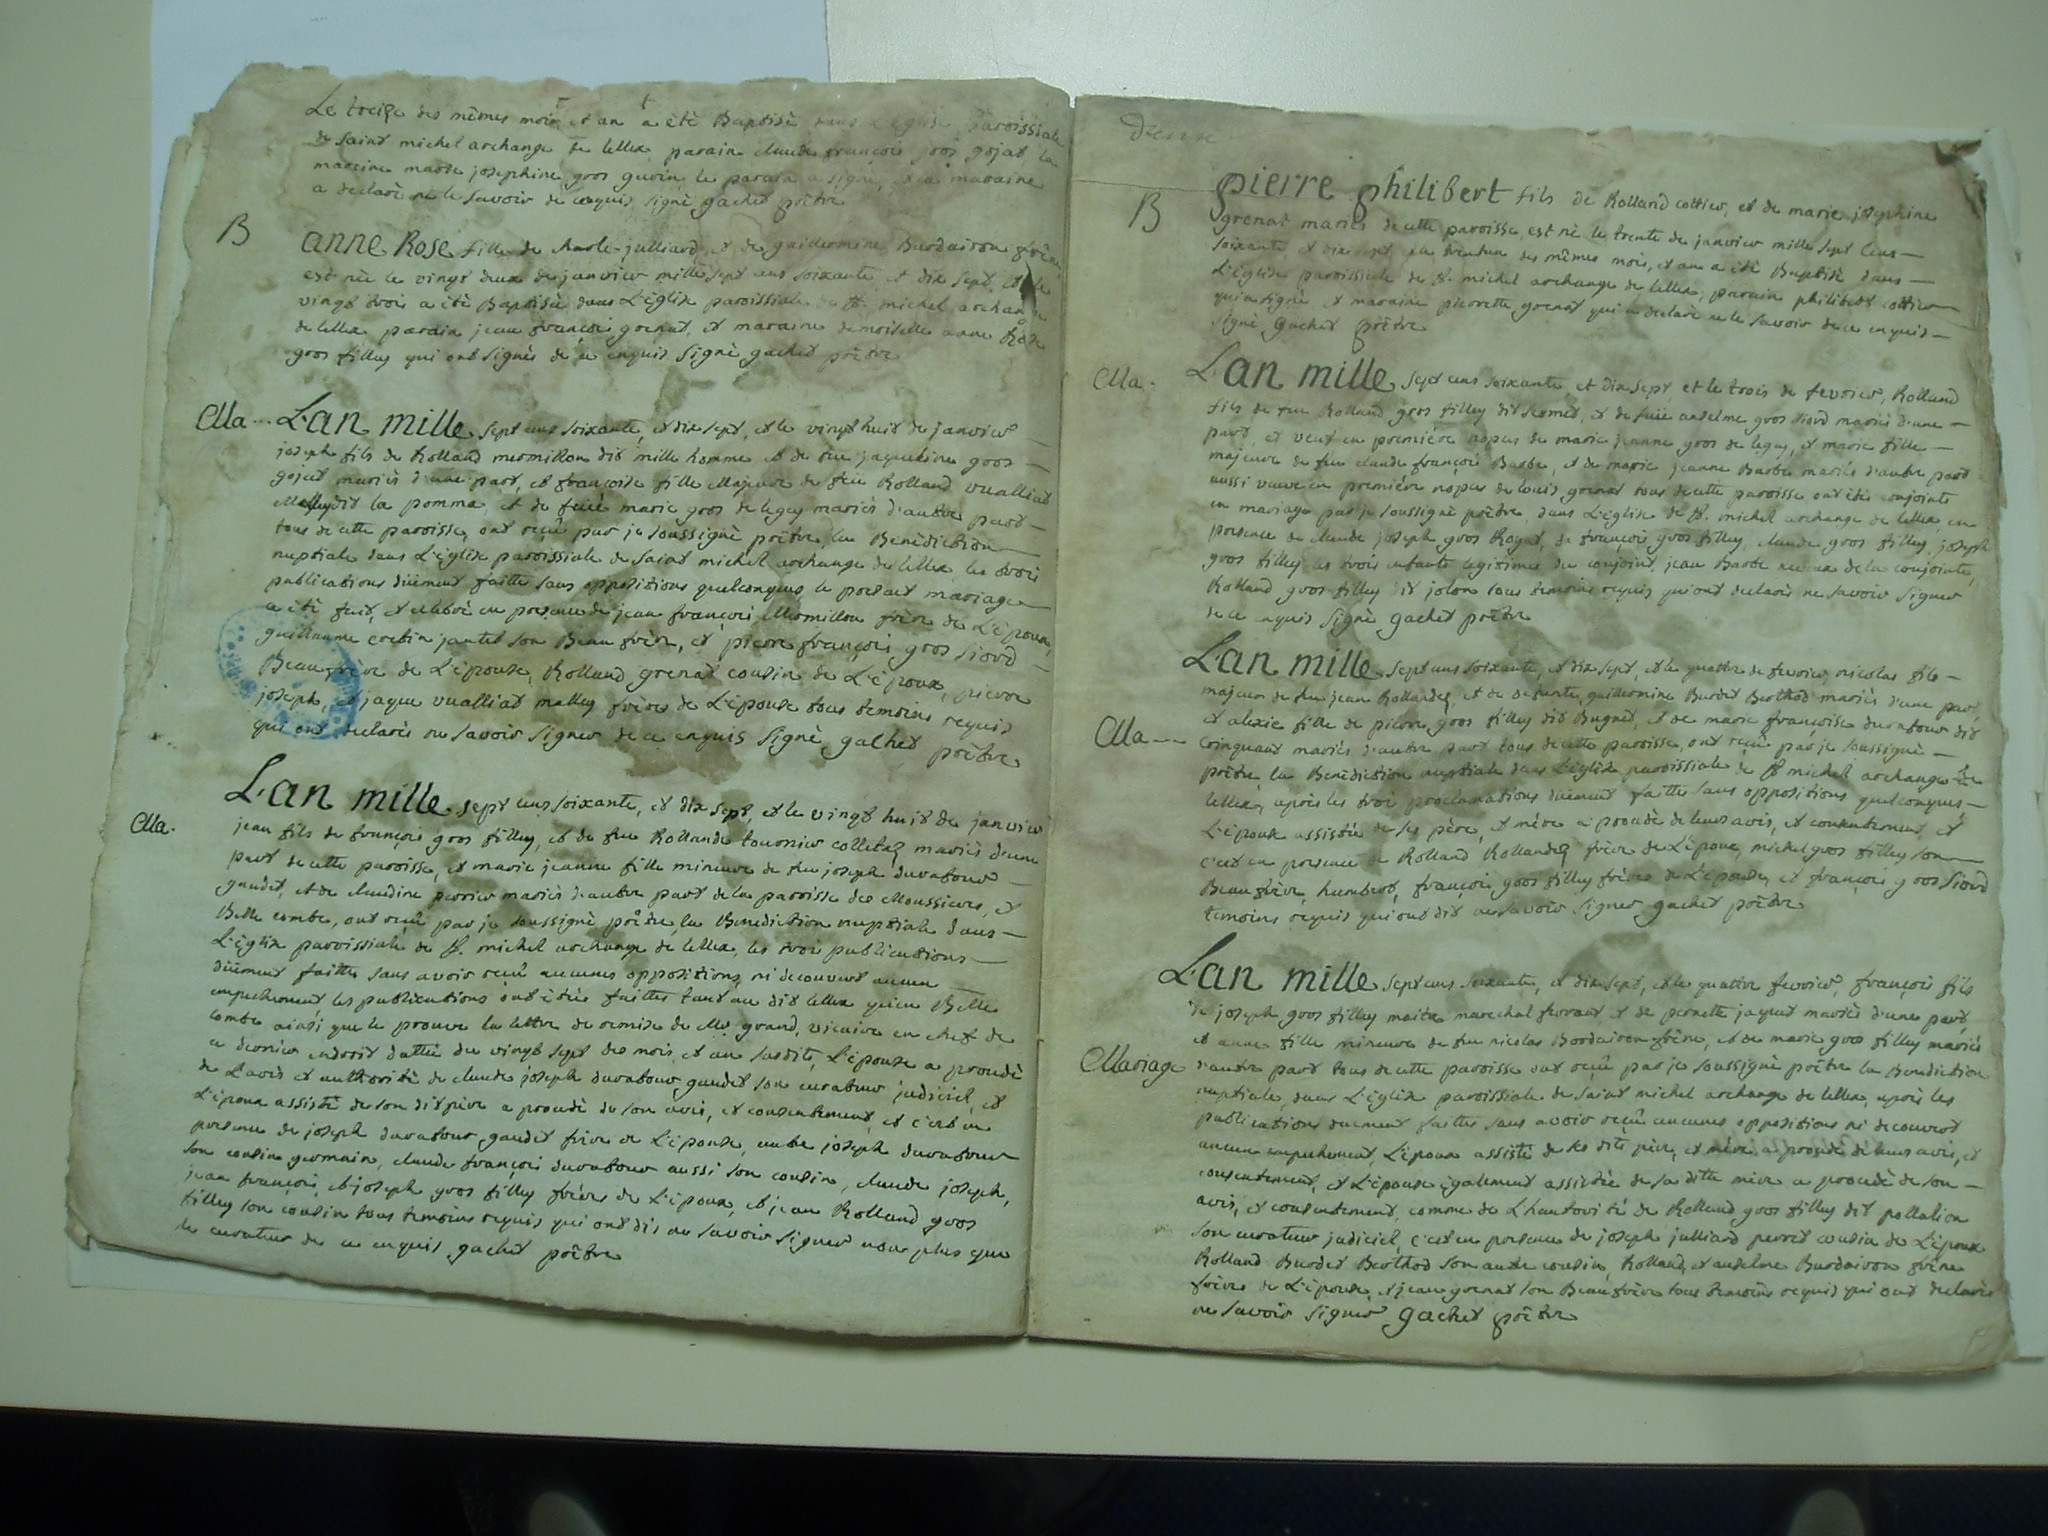 Le treize des mêmes mois et an a été Baptisé dans L'église Paroissiale
de saint michel archange de lellex parain claude françois gros gojat la
maraine marie josephine gros gurin le parain a signé, et la maraine
a declaré ne le savoir de ce enquis signé gachet prêtre
B
anne Rose fille de charle julliard et de guillermine Burdairon frêne
est née le vingt deux de janvier mille sept cens soixante, et dix sept, et le
vingt trois a été Baptisée dans L'église paroissiale de st. michel archange
de lellex parain jean françois grenat, et maraine demoiselle anne Rose
gros filley qui ont signés de ce enquis signé gachet prêtre
Ma...
L'an mille sept cens soixante, et dix sept, et le vingt huit de janvier
joseph fils de Rolland mermillon dit mille homme et de feue jaquemine gros
gojat mariés d'une part, et françoise fille Majeure de feu Rolland vualliat
Malley dit la pomma et de feüe marie gros de leguy mariés d'autre part
tous de cette paroisse, ont reçû par je soussigné prêtre la Bénédiction
nuptiale dans L'église paroissiale de saint michel archange de lellex les trois
publications düement faittes sans oppositions quelconques le present mariage
a été fait, et celebré en presence de jean françois Mermillon frère de L'époux,
guillaume crétin jantet son Beau frère, et pierre françois gros Siord
Beaufrère de L'épouse, Rolland grenat cousin de L'époux, pierre
joseph, et jaque vualliat malley frères de L'épouse tous temoins requis
qui ont declarés ne savoir signer de ce enquis signé gachet prêtre
Ma.
L'an mille sept cens soixante, et dix sept, et le vingt huit de janvier
jean fils de françois gros filley, et de feu Rollande tournier colletaz mariés d'une
part de cette paroisse, et marie jeanne fille mineure de feu joseph durafour
gaudet, et de claudine perrier mariés d'autre part de la paroisse des Moussieres, et
Belle combe, ont reçû par je soussigné prêtre la Benediction nuptiale dans
L'église paroissiale de st. michel archange de lellex, les trois publications
düement faittes sans avoir reçû aucunes oppositions, ni decouvert aucun
empechement, les publications ont étées faittes tant au dit lellex qu'en Belle
combe ainsi que le prouve la lettre de remise de Mr. grand, vicaire en chef de
ce dernier endroit dattée du vingt sept des mois et an susdits, L'épouse a procedé
de L'avis et authorité de claude joseph durafour gaudet son curateur judiciel, et
L'époux assisté de son dit père a procedé de son avis, et consentement, et c'est en
presence de joseph durafour gaudet frère de L'épouse, aimbe joseph durafour
son cousin germain, claude françois durafour aussi son cousin, claude joseph,
jean françois, et joseph gros filley frères de L'époux, et jean Rolland gros
filley son cousin tous temoins requis qui ont dis ne savoir signer non plus que
le curateur de ce enquis gachet prêtre
B
pierre philibert fils de Rolland cottier, et de marie josephine
grenat mariés de cette paroisse, est né le trente de janvier mille sept cens
soixante, et dix sept, et le trentun des mêmes mois, et an a été Baptisé dans
L'église paroissiale de st. michel archange de lellex, parain philibert cottier
qui a signé et maraine pierrette grenat qui a declaré ne le savoir de ce enquis
signé gachet prêtre
Ma.
L'an mille sept cens soixante et dix sept, et le trois de fevrier, Rolland
fils de feu Rolland gros filley dit semet, et de feüe anselme gros Siord mariés d'une
part, et veuf en première nopces de marie jeanne gros de leguy, et marie fille
majeure de feu claude françois Barbe, et de marie jeanne Barbe mariés d'autre part
aussi veuve en première nopces de louis grenat tous de cette paroisse ont étés conjoints
en mariage par je soussigné prêtre, dans L'église de st. michel archange de lellex en
presence de claude joseph gros Royat, de françois gros filley, claude gros filley, joseph
gros filley les trois enfants legitimes du conjoint, jean Barbe neveux de la conjointe,
Rolland gros filley dit jolon tous temoins requis qui ont declarés ne savoir signer
de ce enquis signé gachet prêtre
L'an mille sept cens soixante, et dix sept, et le quattre de fevrier, nicolas fils
majeur de feu jean Rollandez, et de defunte guillermine Burdet Berthod mariés d'une part,
et alexie fille de pierre gros filley dit Bugnet, et de marie françoise durafour dit
Ma---
Coinquant mariés d'autre part tous de cette paroisse, ont reçû par je soussigné
prêtre la Benédiction nuptiale dans L'église paroissiale de st michel archange de
lellex, après les trois proclamations düement faittes sans oppositions quelconques
L'épouse assistée de ses père, et mère a procedé de leurs avis, et consentement, et
c'est en presence de Rolland Rollandez frère de L'époux, michel gros filley son
Beaufrère, humbert, françois gros filley frères de L'épouse, et françois gros Siord
temoins requis qui ont dit ne savoir signer gachet prêtre
L'an mille sept cens soixante, et dix sept, et le quattre fevrier, françois fils
de joseph gros filley maitre marechal ferrant, et de pernette jaquet mariés d'une part,
et anne fille mineure de feu nicolas Bordairon frêne, et de marie gros filley mariés
Mariage
d'autre part tous de cette paroisse ont reçû par je soussigné prêtre la Benediction
nuptiale, dans L'église paroissiale de saint michel archange de lellex, après les
publications duement faittes sans avoir reçû aucunes oppositions ni decouvert
aucun empechement, L'époux assisté de ses dits père, et mère a procedé de leurs avis, et
consentement, et L'épouse également assistée de sa ditte mère a procedé de son
avis, et consentement, comme de L'hautorité de Rolland gros filley dit pallation
son curateur judiciel, c'est en presence de joseph julliard perret cousin de L'époux
Rolland Burdet Berthod son autre cousin, Rolland, et anselme Burdairon frêne
frères de L'épouse, et jean grenat son Beaufrère tous temoins requis qui ont declarés
ne savoir signer gachet prêtre